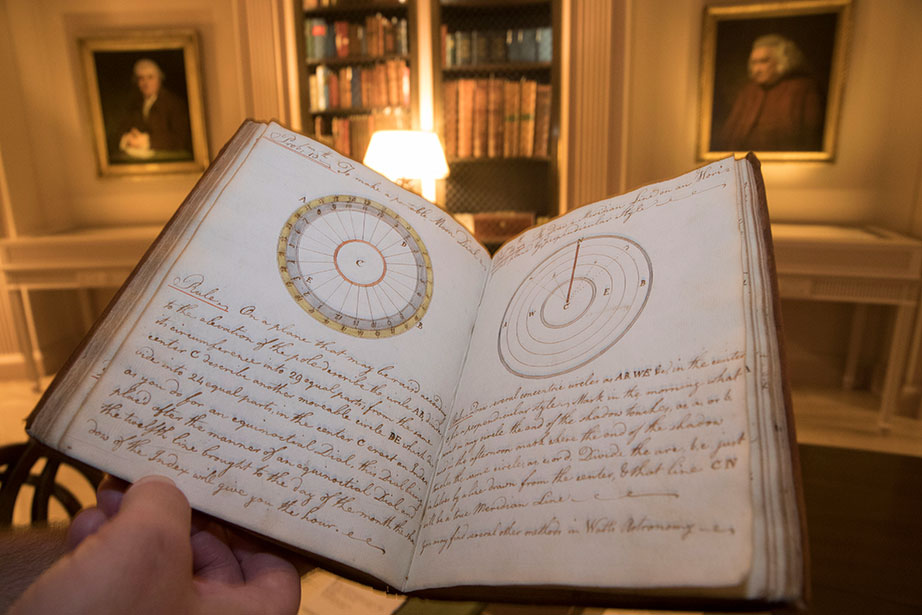 Prob. 13 To make a portable Moon Dial
A
B
D
E
C
Rule. On a plane that may be raised according
to the elevation of the pole describe the circle AB
its circumference into 29 equal parts, from the same
center C describe another moveable circle DE which
divide into 24 equal parts, in the center C erect an Index
as you do for an equinoctial Dial, the Dial being
placed after the manner of an equinoctial Dial, and
the twelfth line brought to the day of the month the sha
dow of the Index will give you the hour.
a Meridian Line on an Hori
Perpendicular style
A
W
C
E
B
draw several concentric circles as ARWES &c in the center
a perpendicular style. Mark in the morning what
circle the end of the shadow touches, as a or b
in the afternoon mark where the end of the shadow
touches the same circle as c or d. Divide the arc, b c just
a line drawn from the center, & that line CN
will be a true Meridian Line
You may find several other methods in Watts Astronomy